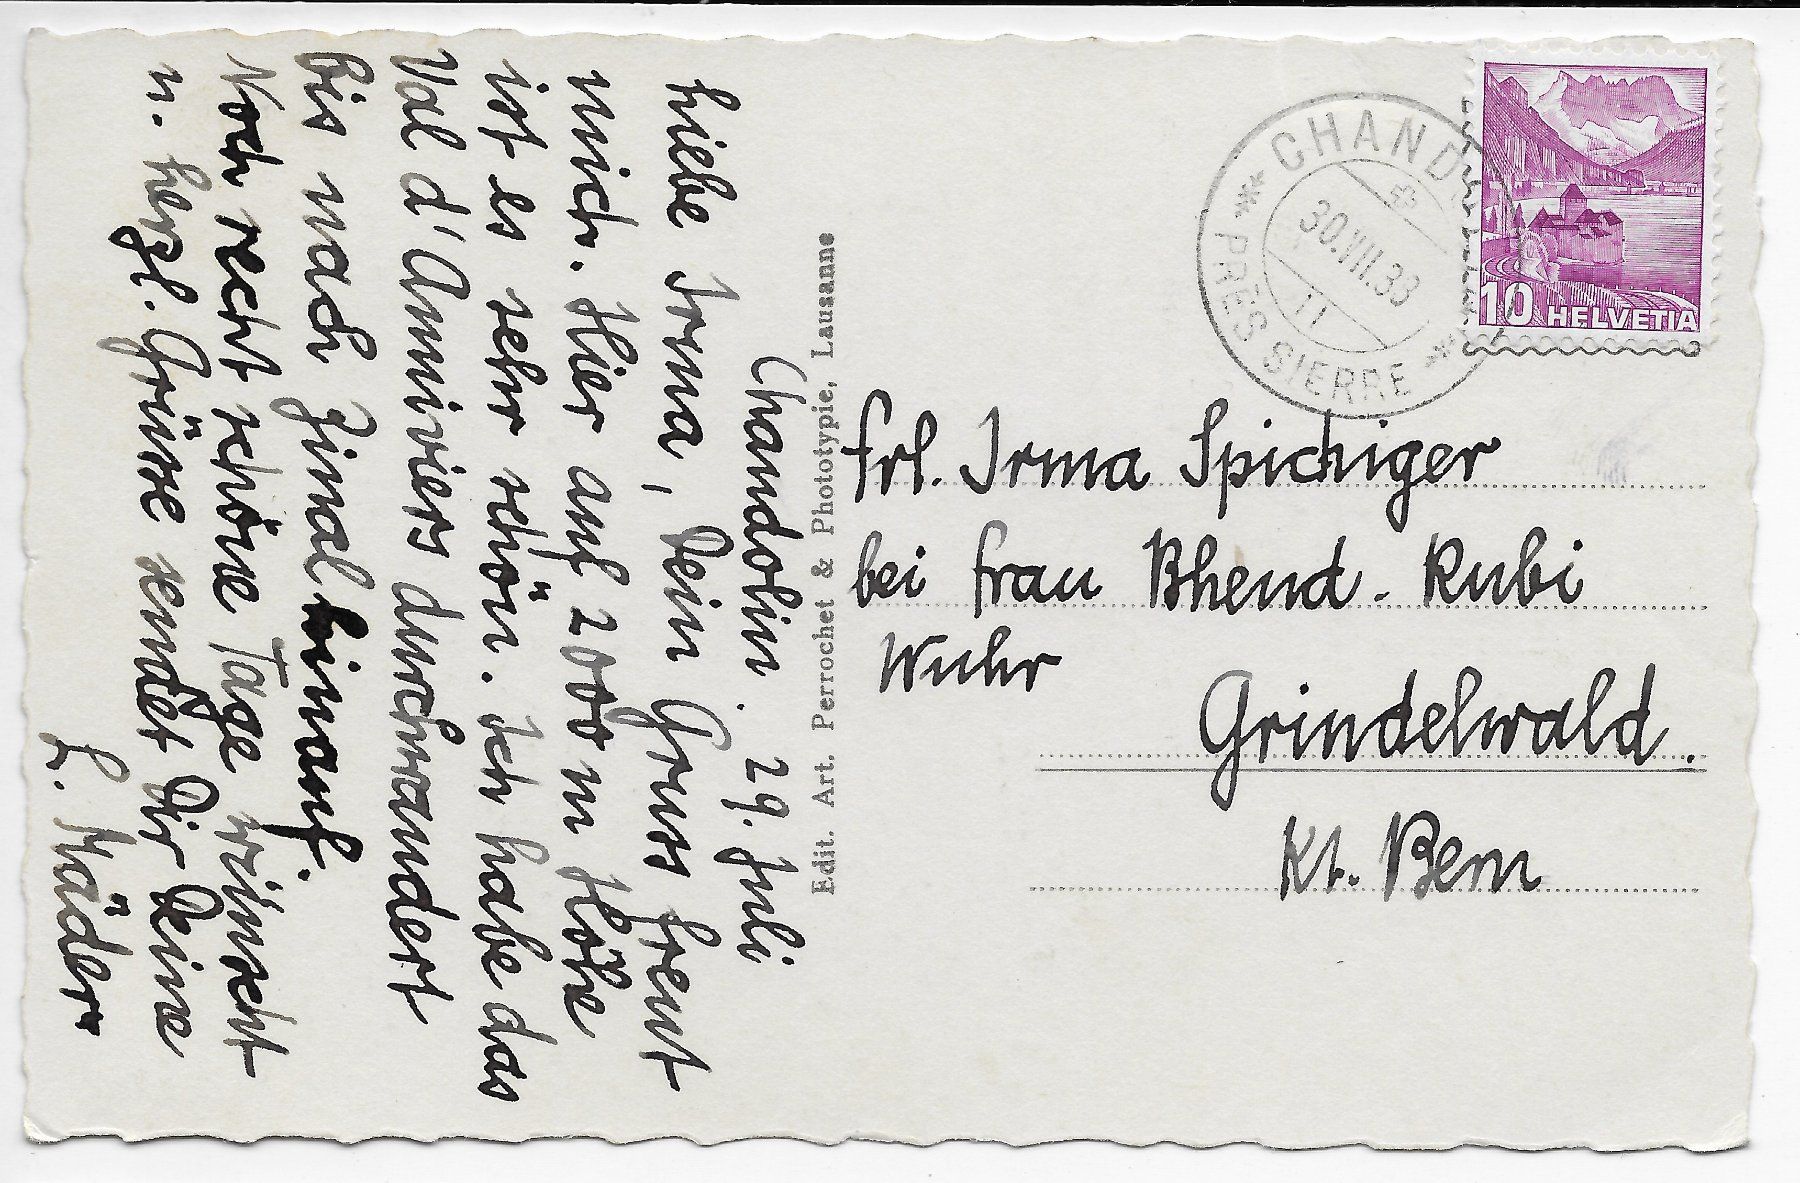 Chandolin. 29. Juli
Liebe Irma, Dein Gruss freut
mich. Hier auf 2000 m Höhe
ist es sehr schön. Ich habe das
Val d'Anniviers durchwandert
bis nach Zinal hinauf.
Noch recht schöne Tage wünscht
u. herzl. Grüsse sendet Dir Deine
L. Mäder
Edit. Art. Perrochet & Phototypie, Lausanne
CHAND
30.VII.38
11
PRÈS SIERRE
10 HELVETIA
Frl. Irma Spichiger
bei Frau Bhend-Rubi
Wuhr
Grindelwald.
Kt. Bern